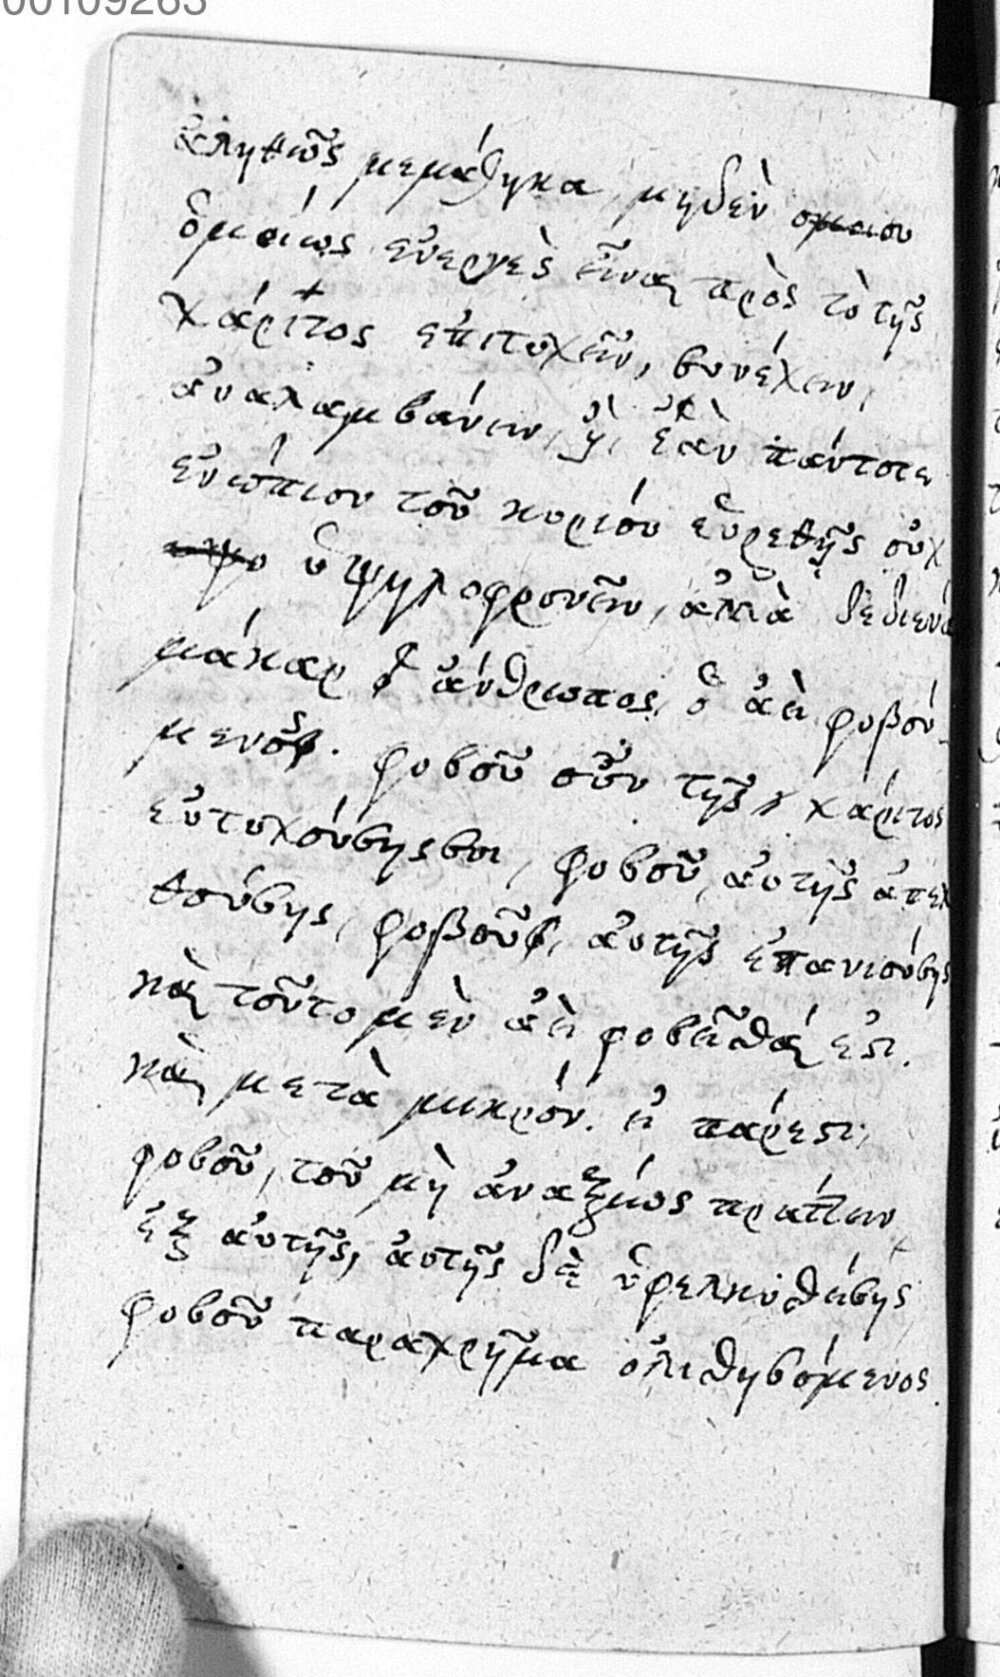 00109263
ἀληθῶς μεμάθηκα, μηδὲν
ὁμοίως ἐνεργὲς εἶναι πρὸς τὸ τῆς
χάριτος ἐπιτυχεῖν, συνέχειν,
ἀναλαμβάνειν, ἢ, ἐὰν πάντοτε
ἐνώπιον τοῦ κυρίου εὑρεθῇς οὐχ
ὑψηλοφρονεῖν, ἀλλὰ δεδιενά
μάκαρ ἄνθρωπος, ὁ ἀεὶ φοβού-
μενος. φοβοῦ οὖν τῆς χάριτος
εὐτυχούσης σοι, φοβοῦ, αὐτῆς ἀπελ
θούσης, φοβοῦ, αὐτῆς ἐπανιούσης
καὶ τοῦτο μὲν ἀεὶ φοβεῖσθαι ἐστι.
καὶ μετὰ μικρόν. εἰ πάρεστι,
φοβοῦ, τοῦ μὴ ἀναξίως πράττειν
ἐξ αὐτῆς, αὐτῆς δὲ ὑφελκυσθείσης
φοβοῦ παραχρῆμα ὀλισθησόμενος.